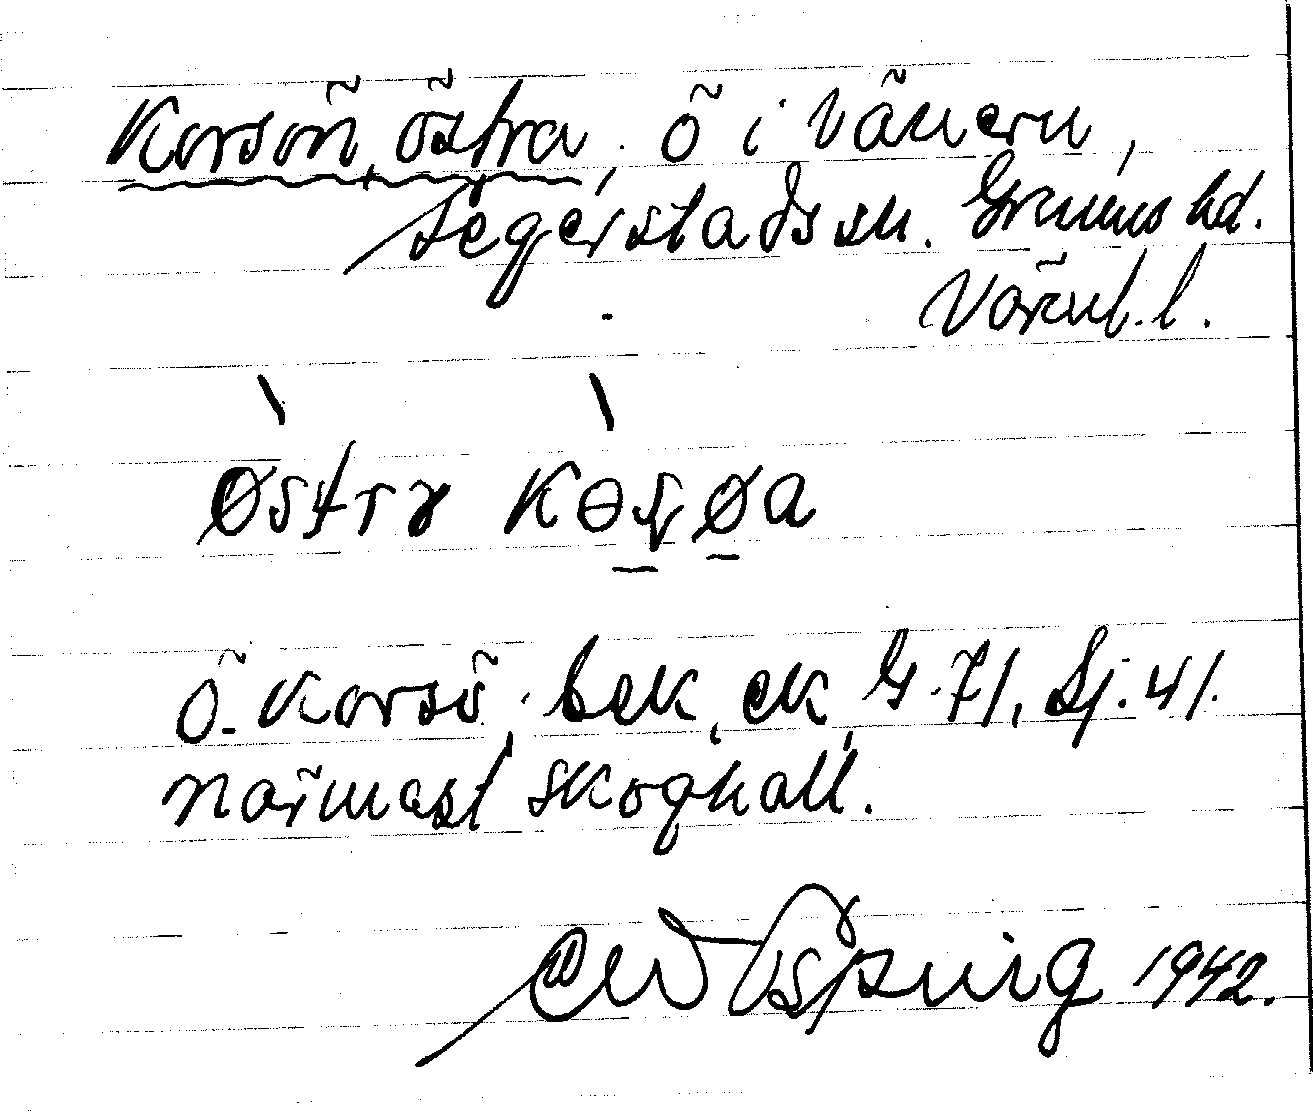 Korsön, östra, ö i Vänern,
Segerstads sn. Grums hd.
Värml. l.
östra kɵrsøa
Ö. Korsö bek, ek, G. 71, Sj. 41.
närmast Skoghall.
1942.